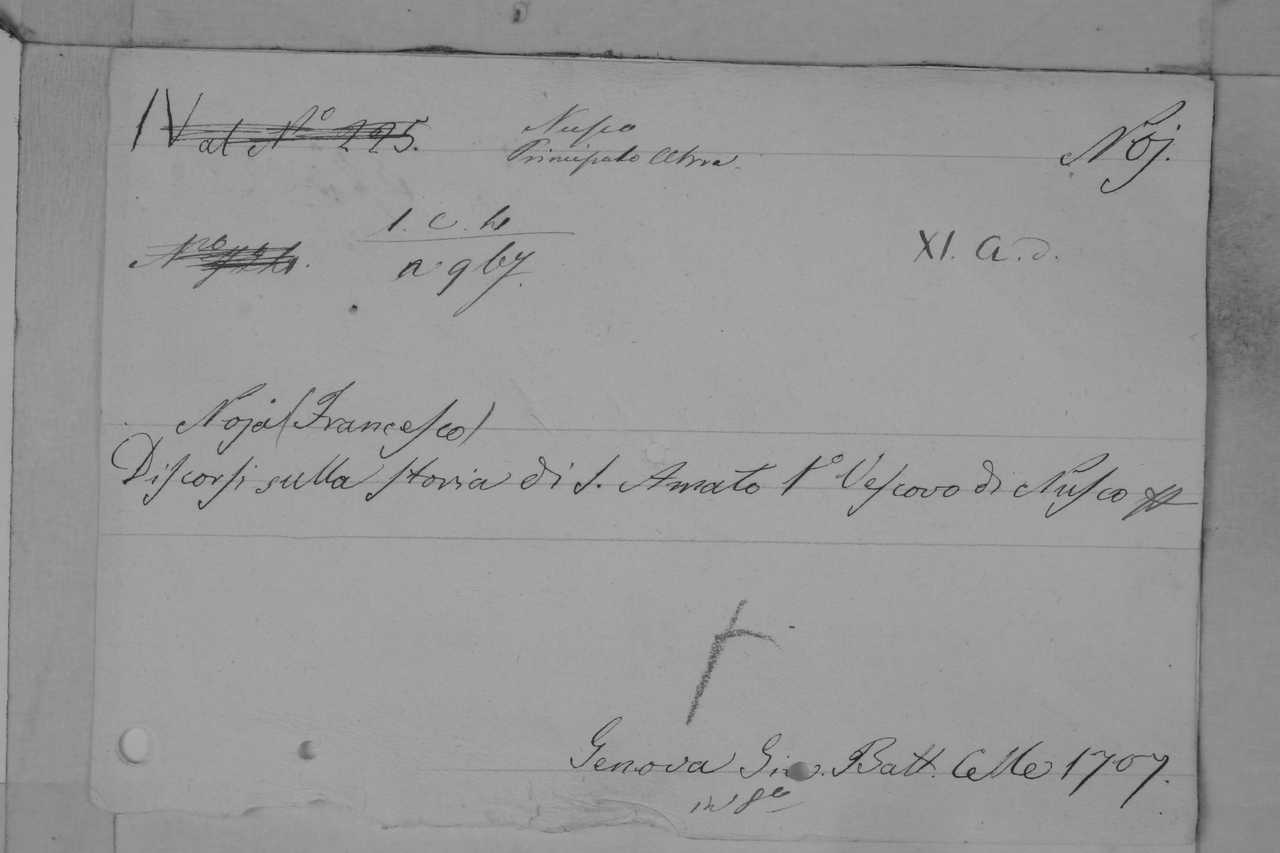 IV al N.º 225.
Nusco
Principato Ultra.
Noj.
1. C. 4
n 967.
XI. a. d.
Noja (Francesco)
Discorsi sulla storia di S. Amato 1º Vescovo di Nusco
Genova Gio. Batt. Celle 1707.
in 8º